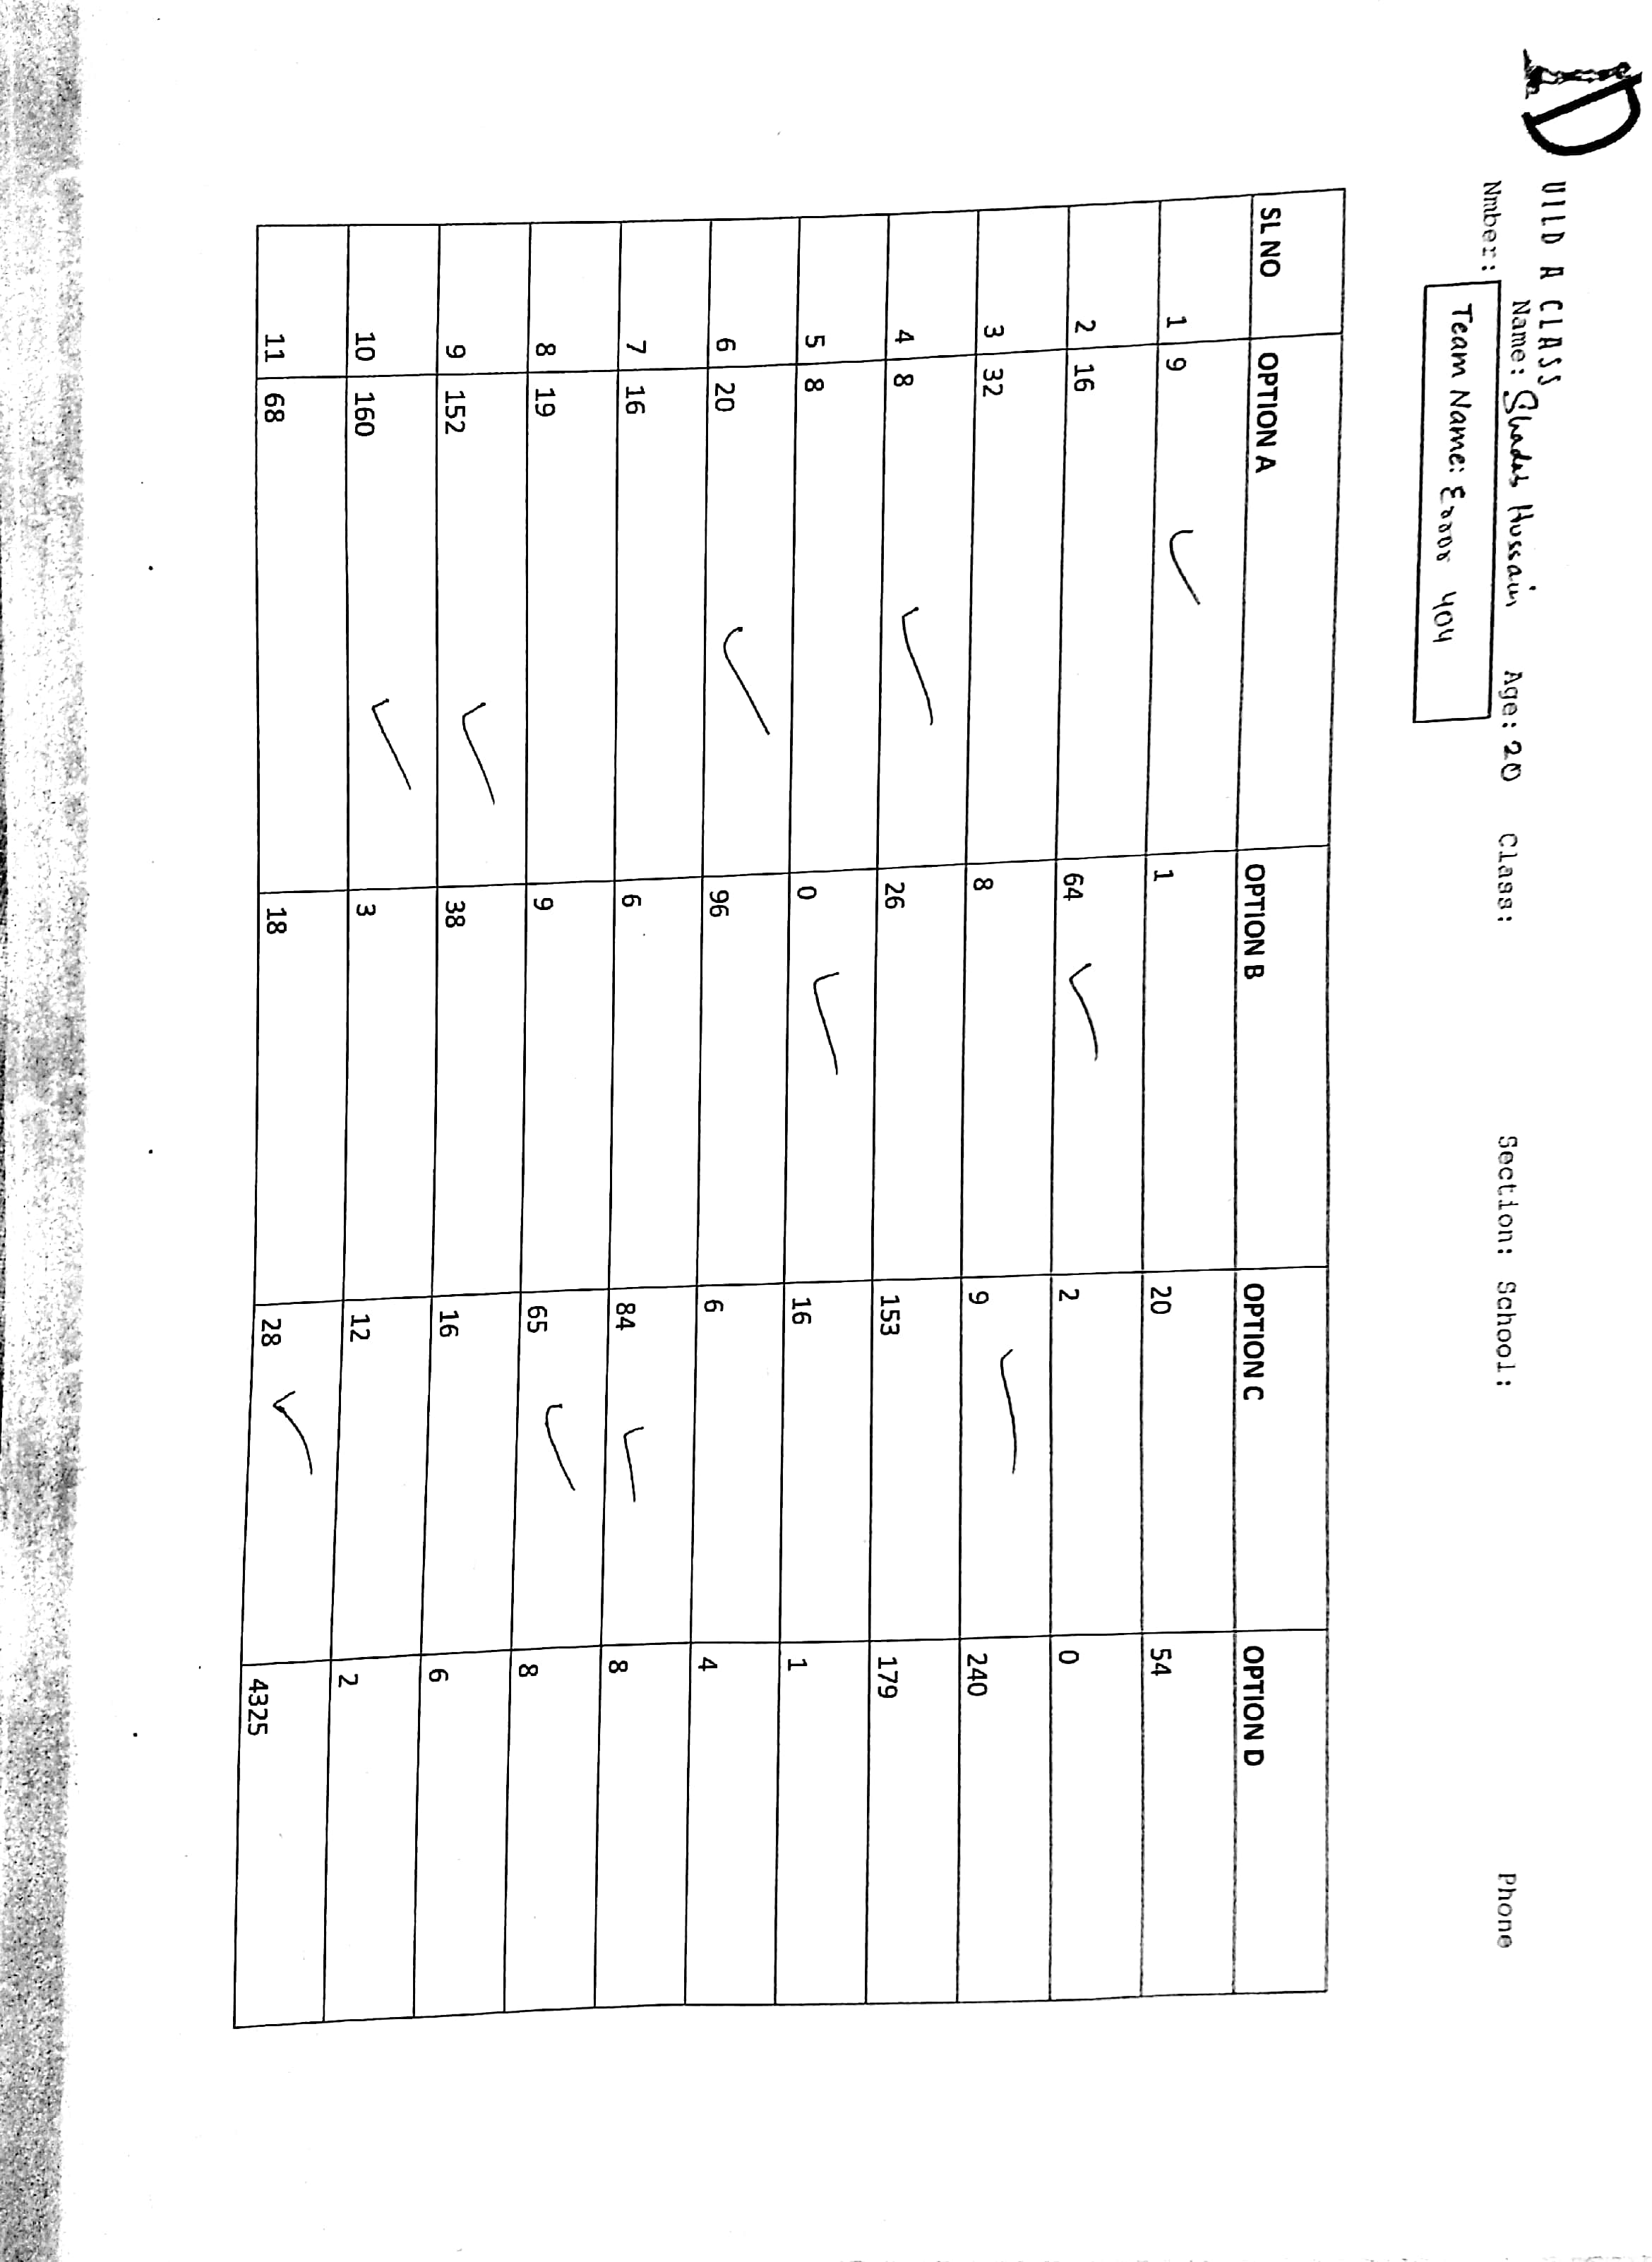 D
UILD A CLASS
Name: Shadab Hussain Age: 20 Class: Section: School: Phone
Nmber:
Team Name: Error 404
SL NO OPTION A OPTION B OPTION C OPTION D
1 9 ✓ 1 20 54
2 16 64 ✓ 2 0
3 32 8 9 ✓ 240
4 8 ✓ 26 153 179
5 8 0 ✓ 16 1
6 20 ✓ 96 6 4
7 16 6 84 ✓ 8
8 19 9 65 ✓ 8
9 152 ✓ 38 16 6
10 160 ✓ 3 12 2
11 68 18 28 ✓ 4325